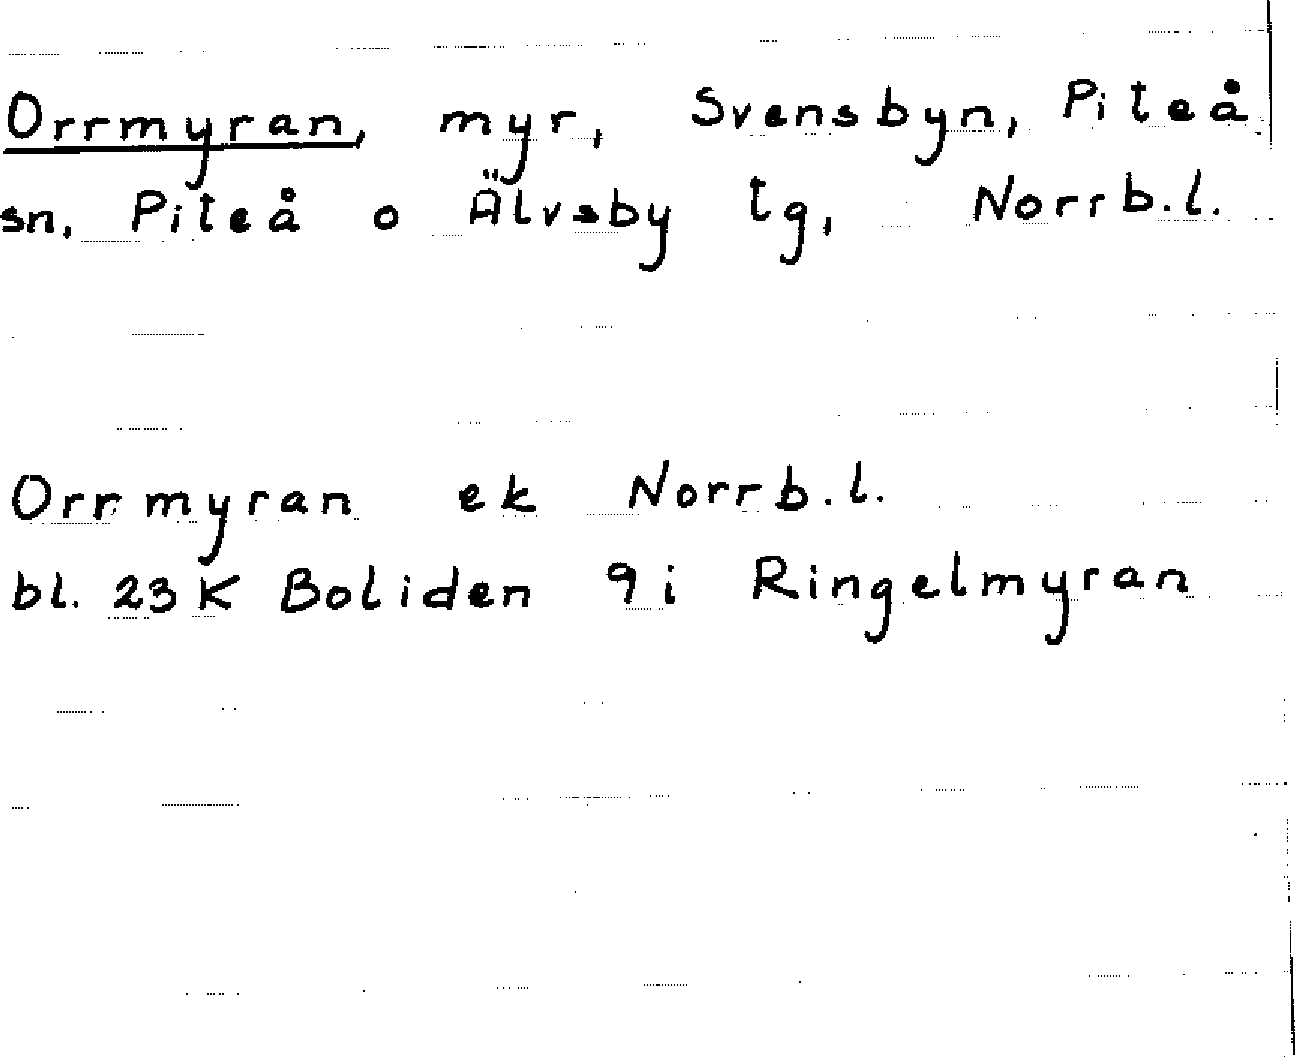 Orrmyran, myr, Svensbyn, Piteå
sn, Piteå o Älvsby tg, Norrb.l.
Orrmyran ek Norrb.l.
bl. 23 K Boliden 9 i Ringelmyran